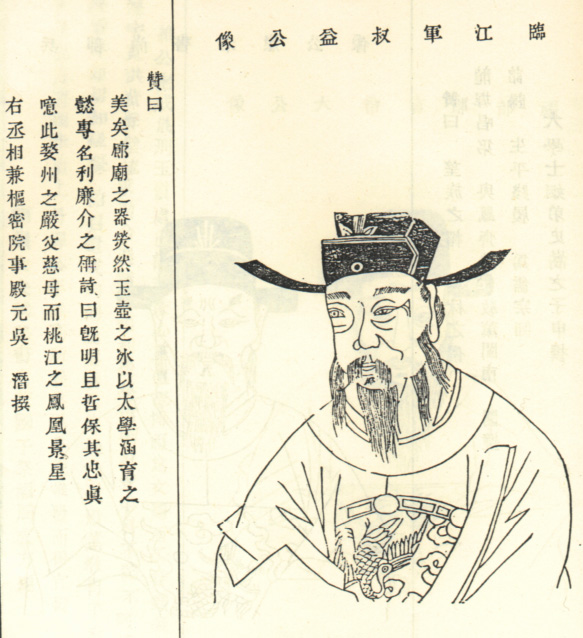 臨江軍叔益公像
贊曰
美矣廊廟之器熒然玉壺之氷以太學涵育之
懿專名利廉介之稱詩曰旣明且哲保其忠眞
噫此婺州之嚴父慈母而桃江之鳳凰景星
右丞相兼樞密院事殿元吳 潛撰